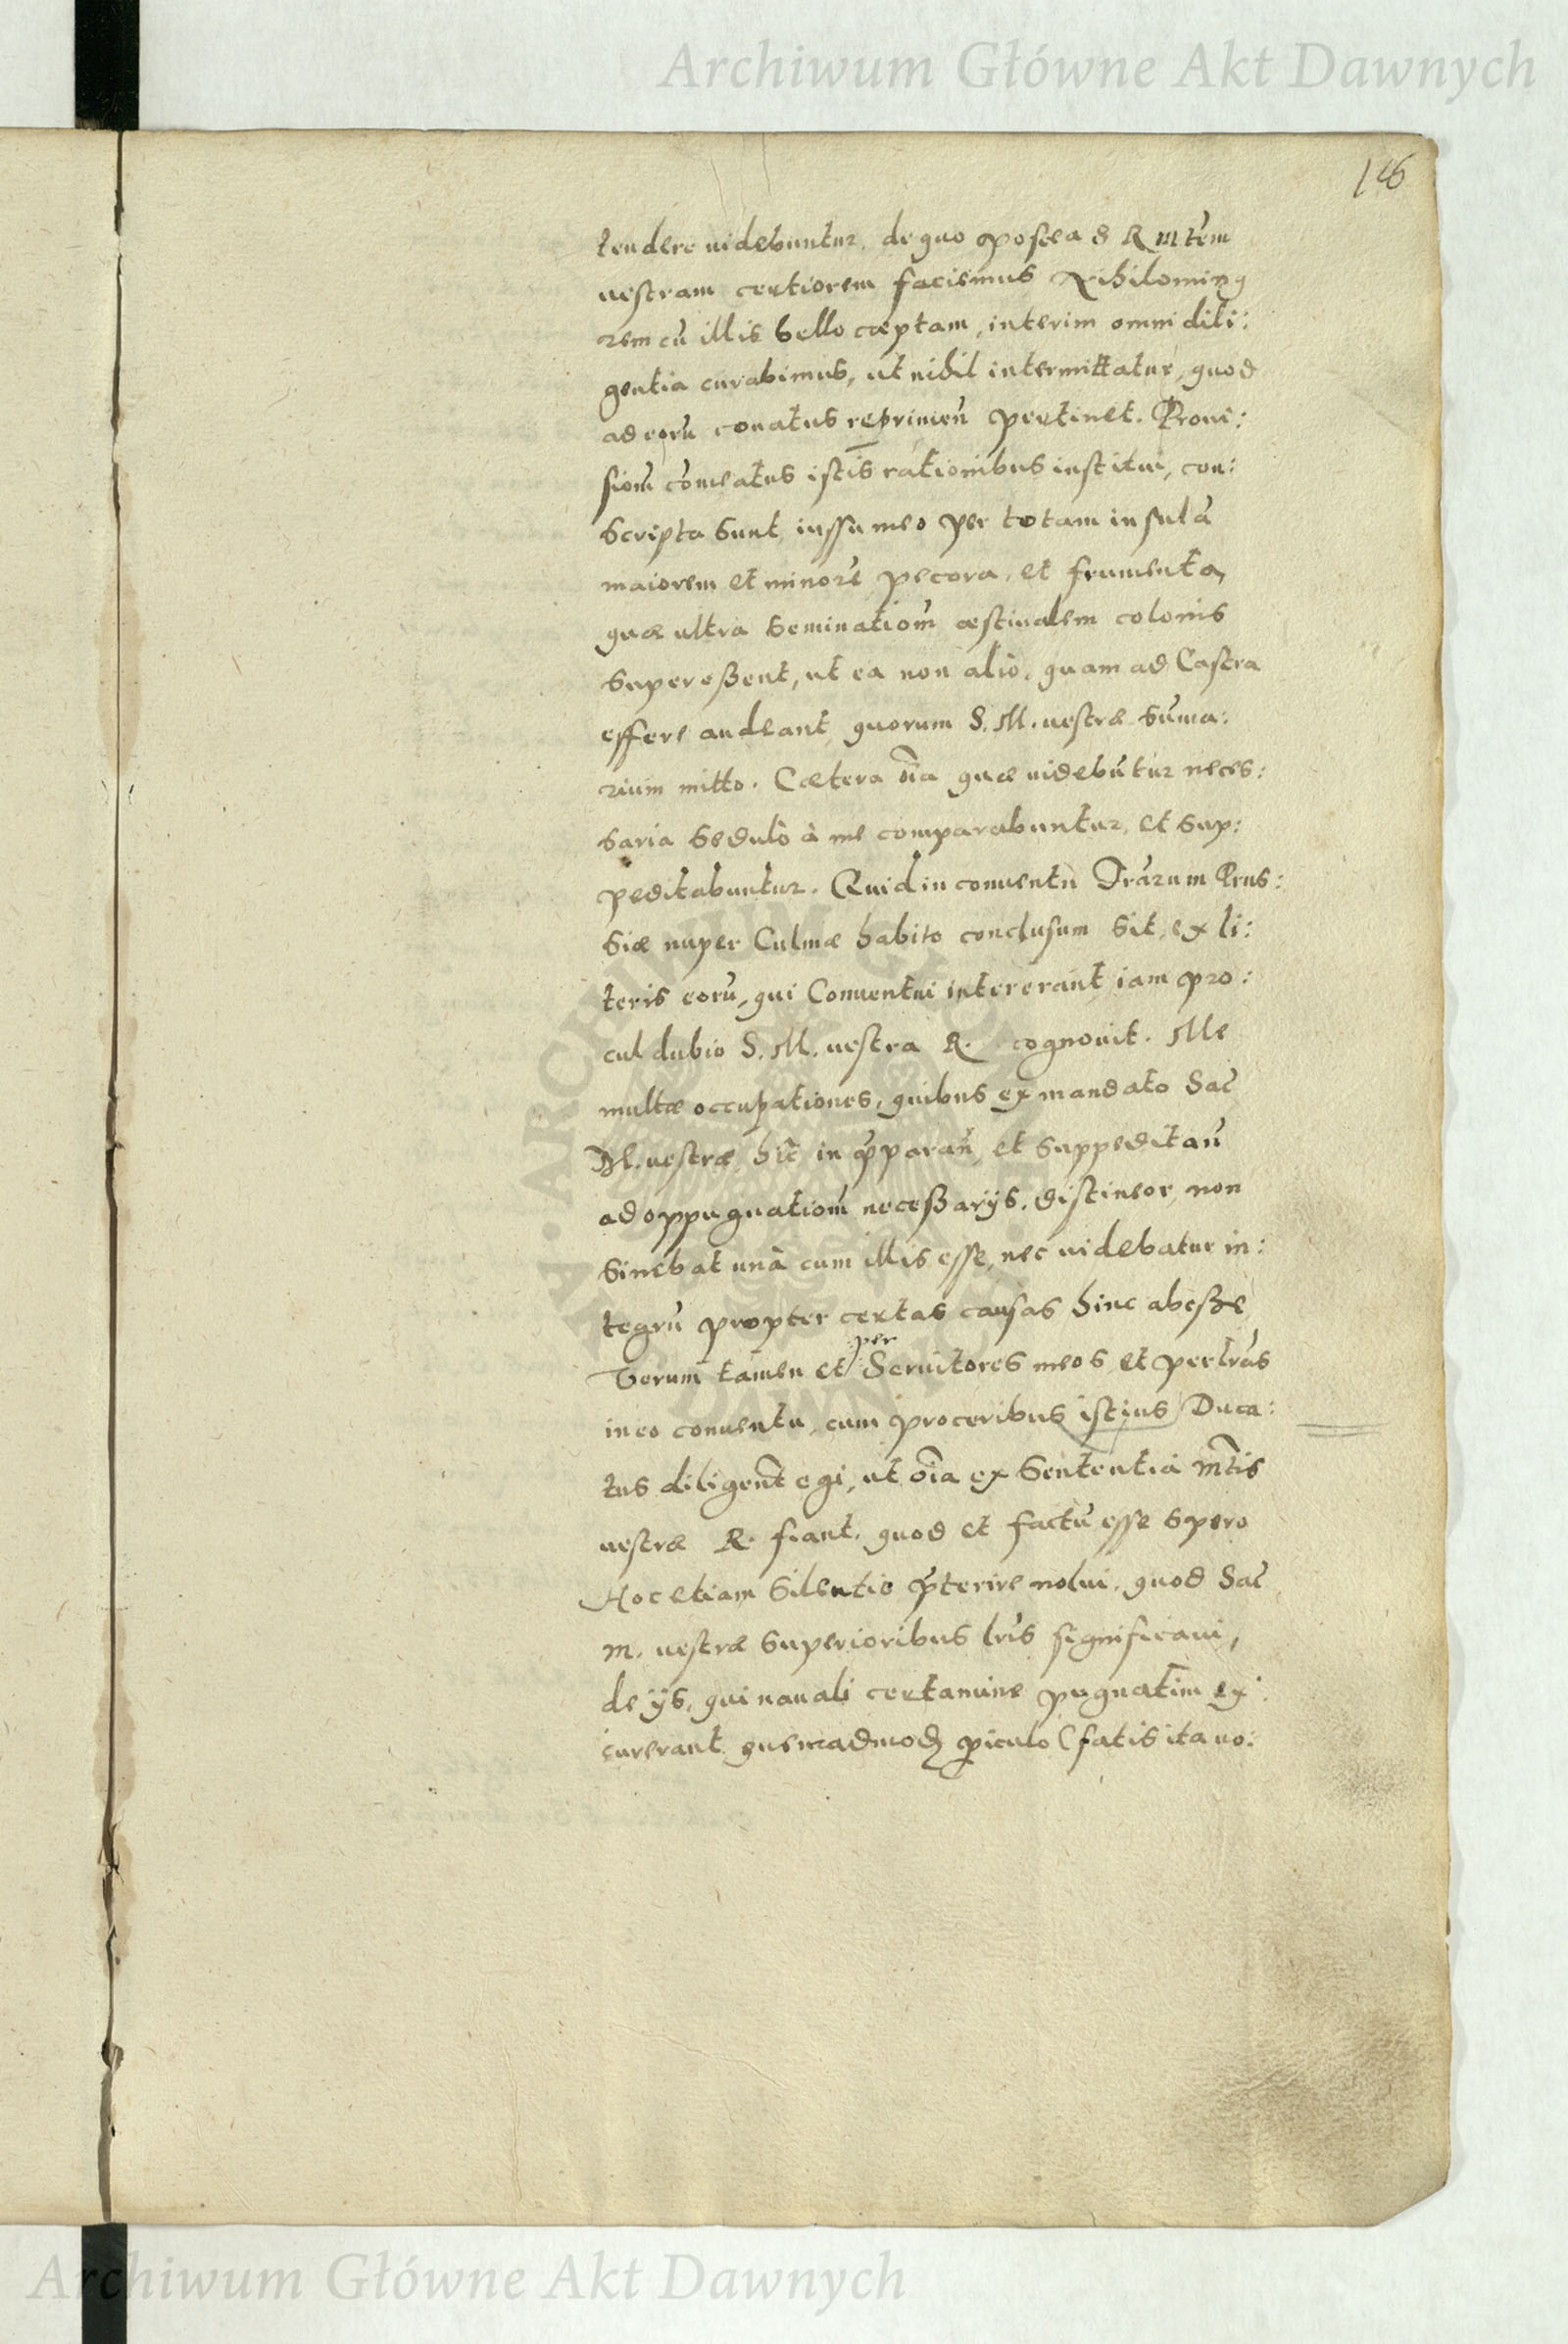 Archiwum Główne Akt Dawnych
146
tendere uidebuntur, de quo postea S R Mtem
uestram certiorem faciemus Nihilominus
rem cū illis bello cæptam, interim omni dili:
gentia curabimus, ut nihil intermittatur, quod
ad eorū conatus reprimen̄ pertinet. Proui:
siom̄ com̄eatus istis rationibus institui, con:
scripta sunt iussu meo per totam insulā
maiorem et minorē pecora, et frumenta,
quæ ultra seminatiom̄ æstiualem colonis
superessent, ut ea non aliò, quam ad Castra
efferre audeant, quorum S. M. uestræ sum̄a:
rium mitto. Cætera oīa quæ uidebūtur neces:
saria sedulò à me comparabuntur, et sup:
peditabuntur. Quid in conuentu Trārum Prus:
siæ nuper Culmæ habito conclusum sit, ex li:
teris eorū, qui Conuentui intererant iam pro:
cul dubio S. M. uestra R. cognouit. Me
multæ occupationes, quibus ex mandato Sac̄
M. uestræ hic in p̄paran̄ et suppeditan̄
ad oppugnatiom̄ necessarijs, distineor, non
sinebat unà cum illis esse, nec uidebatur in:
tegrū propter certas causas hinc abesse,
Verum tamen et per Seruitores meos et per lrās
in eo conuentu, cum proceribus istius Duca:
tus diligent̄ egi, ut oīa ex sententia Mtis
uestræ R. fiant, quod et factū esse spero
Hoc etiam silentio p̄terire nolui, quod Sac̄
M. uestræ superioribus lrīs significaui,
de ijs, qui nauali certamine pugnatūm ex:
iuerant quemadmodū piculo (fatis ita uo:
ARCHIWUM GŁÓWNE AKT DAWNYCH
Archiwum Główne Akt Dawnych